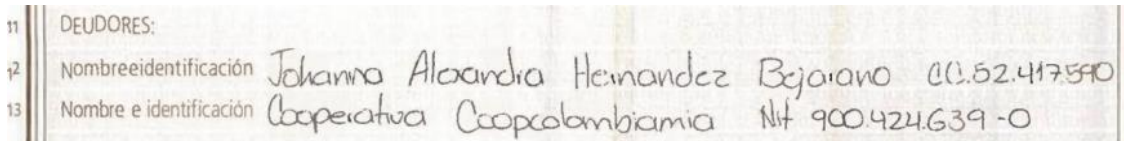 11 DEUDORES:
12 Nombreeidentificación Johanna Alexandra Hernandez Bejarano CC.52.417.590
13 Nombre e identificación Cooperativa Coopcolombiamia Nit 900.424.639-0